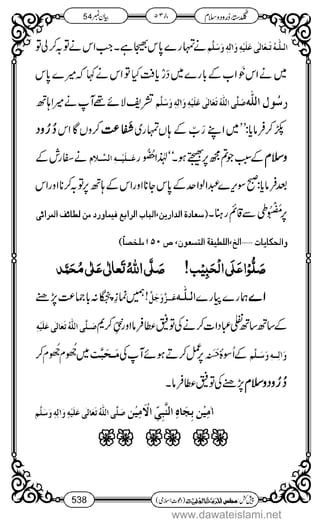 گلدستہ درود وسلام
٥٣٨
بیان نمبر 54
اللّٰہ تَعَالٰی عَلَیْہِ وَاٰلِہٖ وَسَلَّمَ نے تمہارے پاس بھیجا ہے۔ بس اس نے توبہ کر لی تو
میں نے اس خواب کے بارے میں
رسُول اللّٰہ صَلَّی اللّٰہُ تَعَالٰی عَلَیْہِ وَاٰلِہٖ وَسَلَّمَ تشریف لائے تھے آپ نے میرا ہاتھ
پکڑ کر فرمایا: ’’میں اپنے رَبّ کے ہاں تمہاری شفاعت کروں گا اس دُرُود
وسلام کے سبب جو تم مجھ پر بھیجتے ہو۔‘‘
پر مضبوطی سے قائم رہنا۔ (سعادة الدارین، الباب الرابع فیماورد من لطائف المرائی
والحکایات .....الخ، اللطیفة التسعون، ص ١٥٠ ملخصاً)
صَلُّوْا عَلَی الْحَبِیْب! صَلَّی اللّٰہُ تَعَالٰی عَلٰی مُحَمَّد
اے ہمارے پیارے اللّٰہ عَزَّوَجَلَّ! ہمیں نماز پنجگانہ باجماعت پڑھنے
کے ساتھ ساتھ نفلی عبادات کرنے کی توفیق عطا فرما اور نبی کریم صَلَّی اللّٰہُ تَعَالٰی عَلَیْہِ
وَاٰلِہٖ وَسَلَّمَ کے اُسوۂ حسنہ پر عمل کرتے ہوئے آپ کی مَحَبَّت میں جھوم جھوم کر
دُرُود وسلام پڑھنے کی توفیق عطا فرما۔
اٰمِیْن بِجَاہِ النَّبِیِّ الْاَمِیْن صَلَّی اللّٰہُ تَعَالٰی عَلَیْہِ وَاٰلِہٖ وَسَلَّمَ
538
پیش کش: مجلس المدینۃ العلمیۃ (دعوتِ اسلامی)
www.dawateislami.net